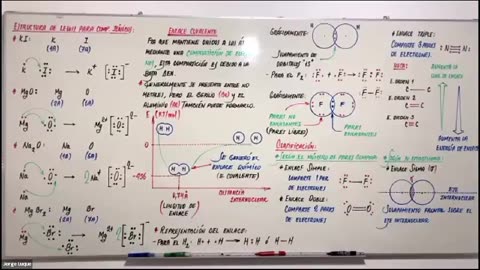 ESTRUCTURA DE LEWIS PARA COMP. IÓNICOS
* KI: K I
(IA) (7A)
K • I: → K⁺ [:I:]⁻
* MgO: Mg O
(2A) (6A)
Mg O: → Mg²⁺ [:O:]²⁻
* Na₂O: Na O
(IA) (6A)
Na
O: → 2Na⁺ [:O:]²⁻
Na
* MgBr₂: Mg Br
(2A) (7A)
Mg Br: → Mg²⁺ 2[:Br:]⁻
ENLACE COVALENTE
FZA QUE MANTIENE UNIDOS A LOS
MEDIANTE UNA COMPARTICIÓN DE
ESTA COMPARTICIÓN ES DEBIDO A LA
BAJA ΔEN.
* GENERALMENTE SE PRESENTA ENTRE NO
METALES, PERO EL BERILIO (2A) Y EL
ALUMINIO (3A) TAMBIÉN PUEDE FORMARLO.
E (KJ/mol)
H H
H H
0
SE GENERÓ EL
ENLACE QUÍMICO
(E. COVALENTE)
H H
-436
0,74Å
(LONGITUD DE
ENLACE)
DISTANCIA
INTERNUCLEAR
* REPRESENTACIÓN DEL ENLACE:
- PARA EL H₂: H• + •H → H:H ó H-H
GRÁFICAMENTE:
H H
SOLAPAMIENTO DE
ORBITALES "1S"
- PARA EL F₂: :F• + •F: → :F:F:
:F-F:
GRÁFICAMENTE:
F F
PARES NO
ENLAZANTES
(PARES LIBRES)
PARES
ENLAZANTES
CLASIFICACIÓN:
* SEGÚN EL NÚMERO DE PARES COMPARTIDOS
* ENLACE SIMPLE:
COMPARTE 1 PAR
DE ELECTRONES
* ENLACE DOBLE:
COMPARTE 2 PARES
DE ELECTRONES
:F-F:
O=O
* ENLACE TRIPLE:
COMPARTE 3 PARES
DE ELECTRONES
:N≡N:
NOTA:
E. ORDEN 1
C-C
E. ORDEN 2
C=C
E. ORDEN 3
C≡C
AUMENTA LA
AUMENTA
LA ENERGÍA DE ENLACE
* SEGÚN SU ESTABILIDAD
* ENLACE SIGMA (σ)
EJE
INTERNUCLEAR
SOLAPAMIENTO FRONTAL SOBRE EL
EJE INTERNUCLEAR
Jorge Luque